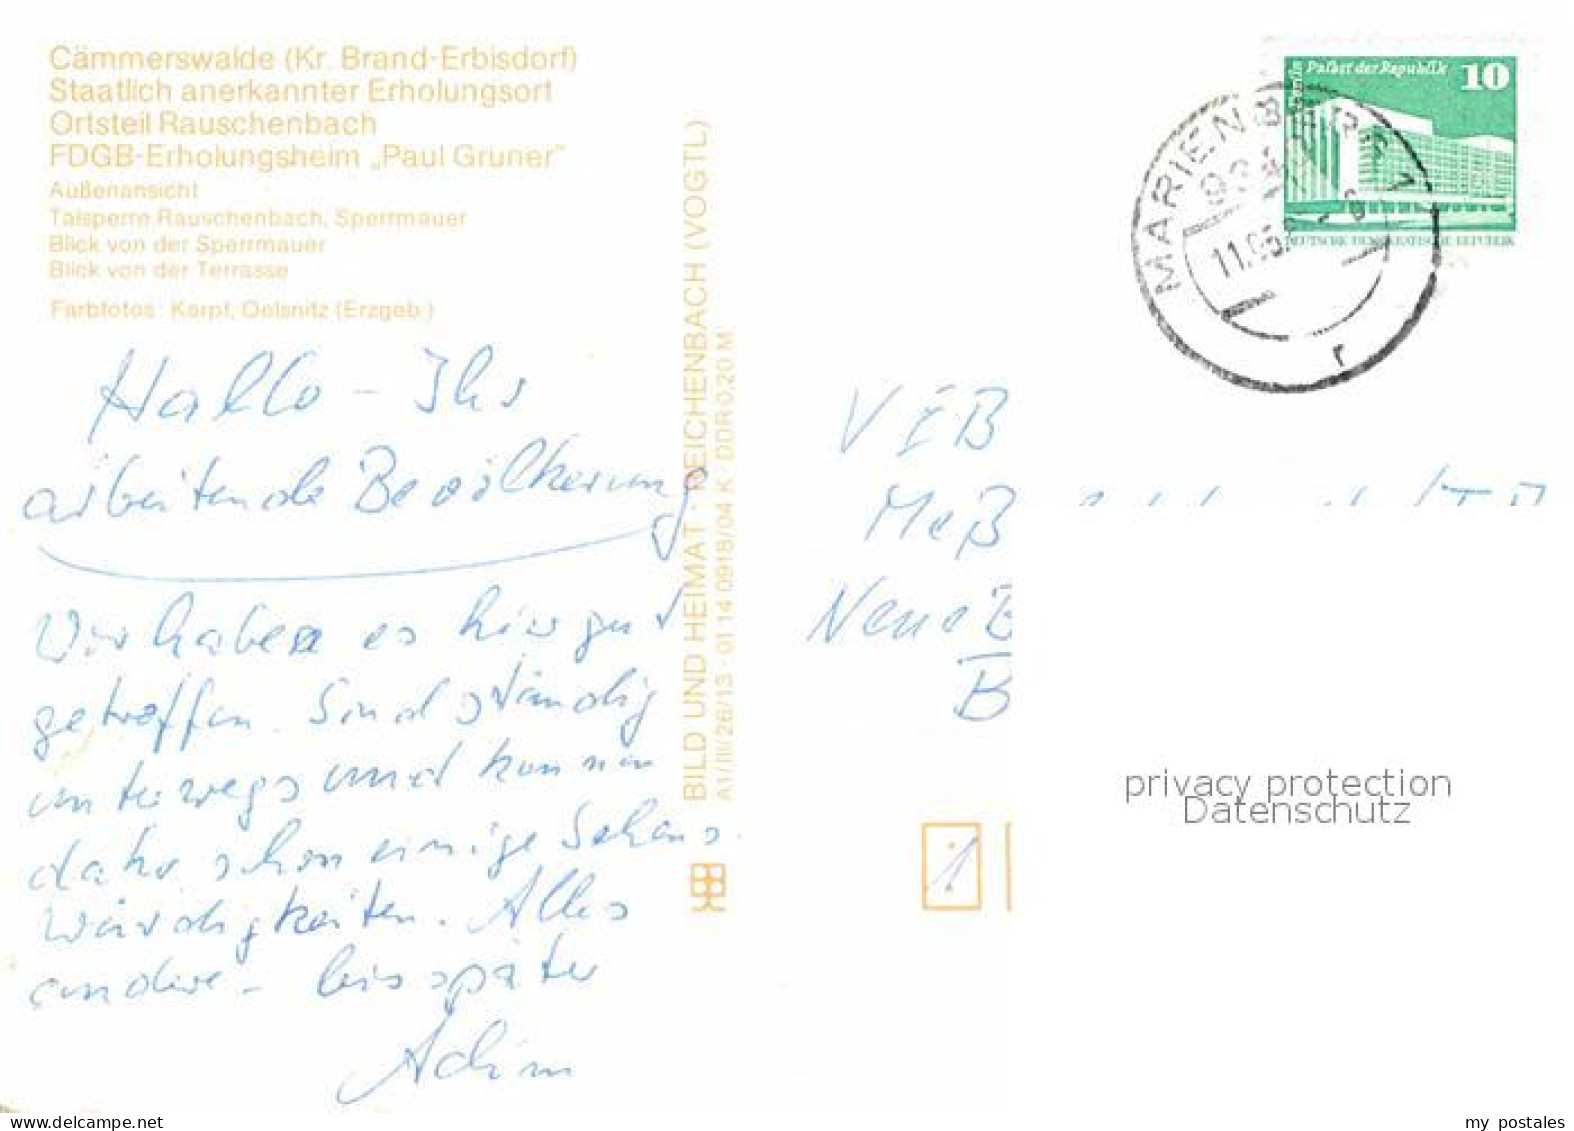 Cämmerswalde (Kr. Brand-Erbisdorf)
Staatlich anerkannter Erholungsort
Ortsteil Rauschenbach
FDGB-Erholungsheim „Paul Gruner"
Außenansicht
Talsperre Rauschenbach, Sperrmauer
Blick von der Sperrmauer
Blick von der Terrasse
Farbfotos: Karpf, Oelsnitz (Erzgeb.)
Hallo - Ihr
arbeitende Bevölkerung
Wir haben es hier gut
getroffen. Sind ständig
unterwegs und kennen
daher schon einige Sehens
würdigkeiten. Alles
andere - bis später
Achim
BILD UND HEIMAT · REICHENBACH (VOGTL)
A1/III/26/13 · 01 14 0918/04 K · DDR 0,20 M
Palast der Republik 10
Berlin
DEUTSCHE DEMOKRATISCHE REPUBLIK
MARIENBERG 1
11.
r
VEB
Meß
Neue B
B
1
privacy protection
Datenschutz
my postales